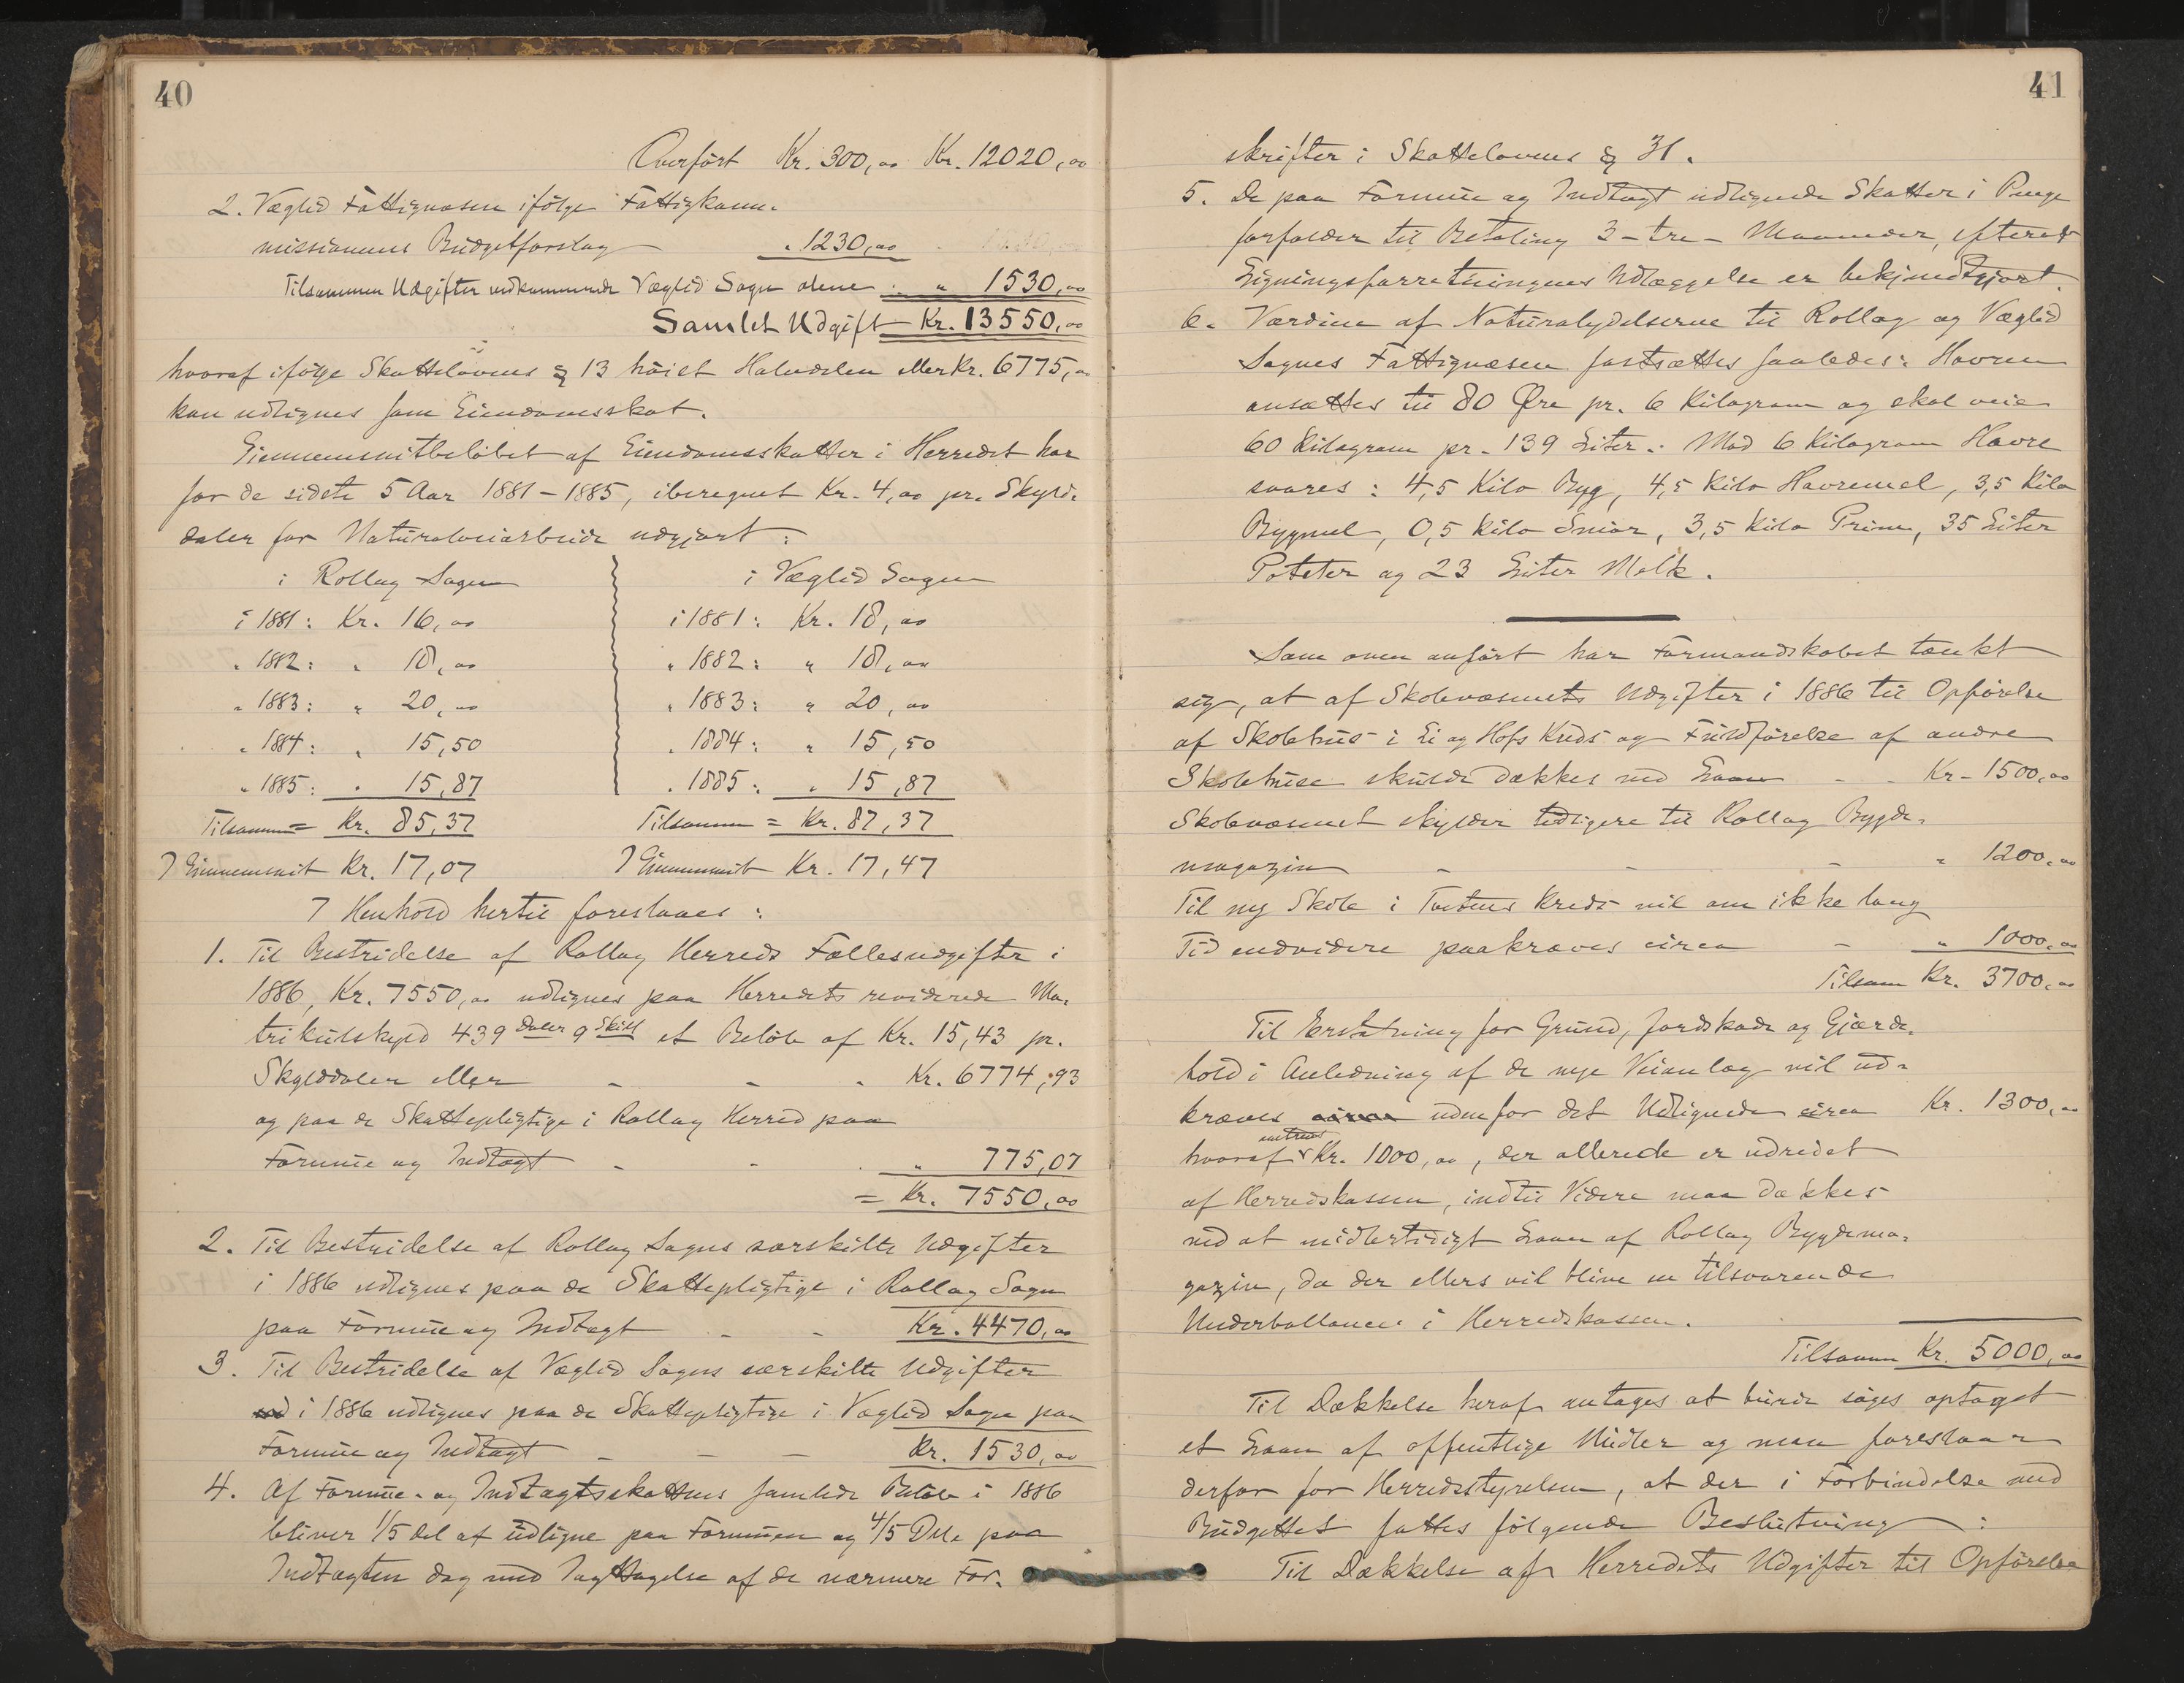 40
Overført Kr. 300,00 Kr. 12020,00
2. Væglid Fattigvæsen ifølge Fattigkom-
missionens Budgetforslag „ 1230,00
Tilsammen Udgifter vedkommende Væglid Sogn alene „ 1530,00
Samlet Udgift Kr. 13550,00
hvoraf ifølge Skattelovens § 13 høiest Halvdelen eller Kr. 6775,00
kan udlignes som Eiendomsskat.
Giennemsnitbeløbet af Eiendomsskatter i Herredet har
for de sidste 5 Aar 1881-1885, iberegnet Kr. 4,00 pr. Skyld-
daler for Naturalveiarbeide udgjort:
i Rollag Sogn
i 1881: Kr. 16,00
„ 1882: „ 18,00
„ 1883: „ 20,00
„ 1884: „ 15,50
„ 1885: „ 15,87
Tilsammen = Kr. 85,37
I Giennemsnit Kr. 17,07
i Væglid Sogn
i 1881: Kr. 18,00
„ 1882: „ 18,00
„ 1883: „ 20,00
„ 1884: „ 15,50
„ 1885: „ 15,87
Tilsammen = Kr. 87,37
I Giennemsnit Kr. 17,47
I Henhold hertil foreslaaes:
1. Til Bestridelse af Rollag Herreds Fællesudgifter i
1886, Kr. 7550,00 udlignes paa Herredets reviderede Ma-
trikulskyld 439 Daler 9 Skill et Beløb af Kr. 15,43 pr.
Skylddaler eller - - - Kr. 6774,93
og paa de Skattepligtige i Rollag Herred paa
Formue og Indtægt - - „ 775,07
= Kr. 7550,00
2. Til Bestridelse af Rollag Sogns særskilte Udgifter
i 1886 udlignes paa de Skattepligtige i Rollag Sogn
paa Formue og Indtægt - - Kr. 4470,00
3. Til Bestridelse af Væglid Sogns særskilte Udgifter
i 1886 udlignes paa de Skattepligtige i Væglid Sogn paa
Formue og Indtægt - - - Kr. 1530,00
4. Af Formue- og Indtægtsskattens samlede Beløb i 1886
bliver 1/5 del at udligne paa Formuen og 4/5 Dele paa
Indtægten dog med Iagttagelse af de nærmere For-
41
skrifter i Skattelovens § 31.
5. De paa Formue og Indtægt udlignede Skatter i Penge
forfalder til Betaling 3 - tre - Maaneder, efterat
Ligningsforretningens Udlæggelse er bekjendtgjort.
6. Værdien af Naturalydelserne til Rollag og Væglid
Sognes Fattigvæsen fastsættes saaledes: Havren
ansættes til 80 Øre pr. 6 Kilogram og skal veie
60 Kilogram pr. 139 Liter. Mod 6 Kilogram Havre
svares: 4,5 Kilo Byg, 4,5 Kilo Havremel, 3,5 Kilo
Bygmel, 0,5 Kilo Smør, 3,5 Kilo Prim, 35 Liter
Poteter og 23 Liter Melk.
Som oven anført har Formandskabet tænkt
sig, at af Skolevæsenets Udgifter i 1886 til Opførelse
af Skolehus i Li og Hofs Kreds og Fuldførelse af andre
Skolehuse skulde dækkes ved Laan - - Kr. 1500,00
Skolevæsenet skylder tidligere til Rollag Bygde-
magazin - - - „ 1200,00
Til ny Skole i Tveitens Kreds vil om ikke lang
Tid endvidere paakræves circa - „ 1000,00
Tilsam Kr. 3700,00
Til Erstatning for Grund, Jordskade og Gjærde-
hold i Anledning af de nye Veianlæg vil ud-
kræves circa udenfor det Udlignede circa Kr. 1300,00
hvoraf omtrent Kr. 1000,00, der allerede er udredet
af Herredskassen, indtil Videre maa dækkes
ved et midlertidigt Laan af Rollag Bygdema-
gazin, da der ellers vil blive en tilsvarende
Underballance i Herredskassen.
Tilsammen Kr. 5000,00
Til Dækkelse heraf antages at burde søges optaget
et Laan af offentlige Midler og man foreslaar
derfor for Herredsstyrelsen, at der i Forbindelse med
Budgettet fattes følgende Beslutning:
Til Dækkelse af Herredets Udgifter til Opførelse